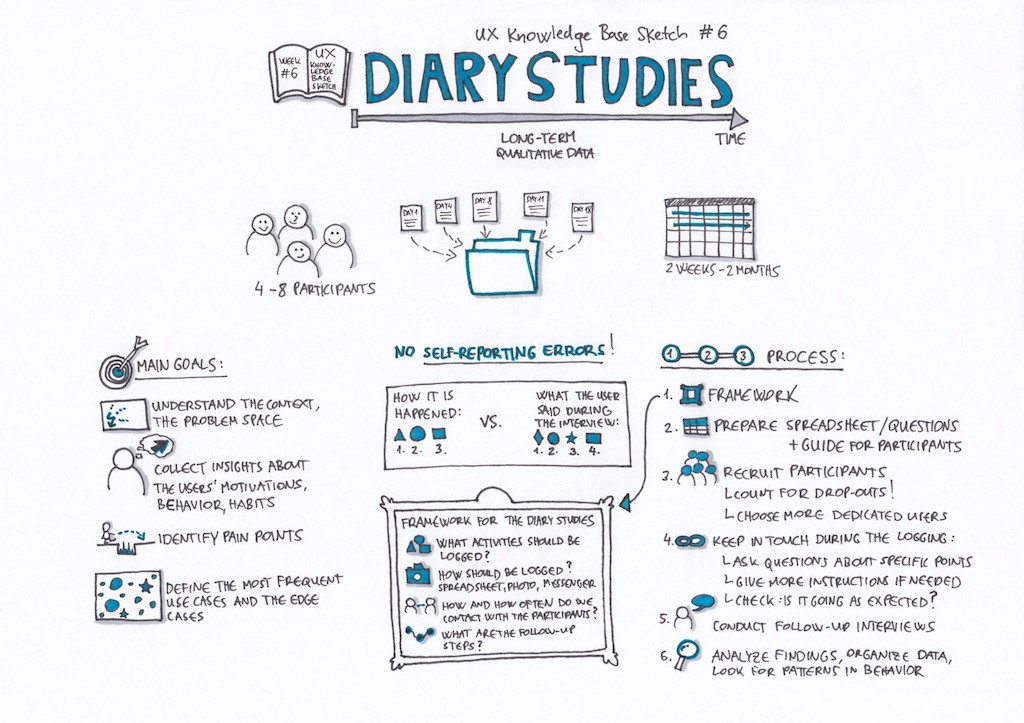 UX Knowledge Base Sketch #6
WEEK
#6
UX
KNOW-
LEDGE
BASE
SKETCH
DIARY STUDIES
LONG-TERM
QUALITATIVE DATA
TIME
DAY 1
DAY 4
DAY 8
DAY 11
4-8 PARTICIPANTS
2 WEEKS-2 MONTHS
MAIN GOALS:
UNDERSTAND THE CONTEXT,
THE PROBLEM SPACE
COLLECT INSIGHTS ABOUT
THE USERS' MOTIVATIONS,
BEHAVIOR, HABITS
IDENTIFY PAIN POINTS
DEFINE THE MOST FREQUENT
USE CASES AND THE EDGE
CASES
NO SELF-REPORTING ERRORS!
HOW IT IS
HAPPENED:
1. 2. 3.
VS.
WHAT THE USER
SAID DURING
THE INTERVIEW:
1. 2. 3. 4.
FRAMEWORK FOR THE DIARY STUDIES
WHAT ACTIVITIES SHOULD BE
LOGGED?
HOW SHOULD BE LOGGED?
SPREADSHEET, PHOTO, MESSENGER
HOW AND HOW OFTEN DO WE
CONTACT WITH THE PARTICIPANTS?
WHAT ARE THE FOLLOW-UP
STEPS?
1 2 3 PROCESS:
1. FRAMEWORK
2. PREPARE SPREADSHEET/QUESTIONS
+ GUIDE FOR PARTICIPANTS
3. RECRUIT PARTICIPANTS
COUNT FOR DROP-OUTS!
CHOOSE MORE DEDICATED USERS
4. KEEP IN TOUCH DURING THE LOGGING:
ASK QUESTIONS ABOUT SPECIFIC POINTS
GIVE MORE INSTRUCTIONS IF NEEDED
CHECK: IS IT GOING AS EXPECTED?
5. CONDUCT FOLLOW-UP INTERVIEWS
6. ANALYZE FINDINGS, ORGANIZE DATA,
LOOK FOR PATTERNS IN BEHAVIOR